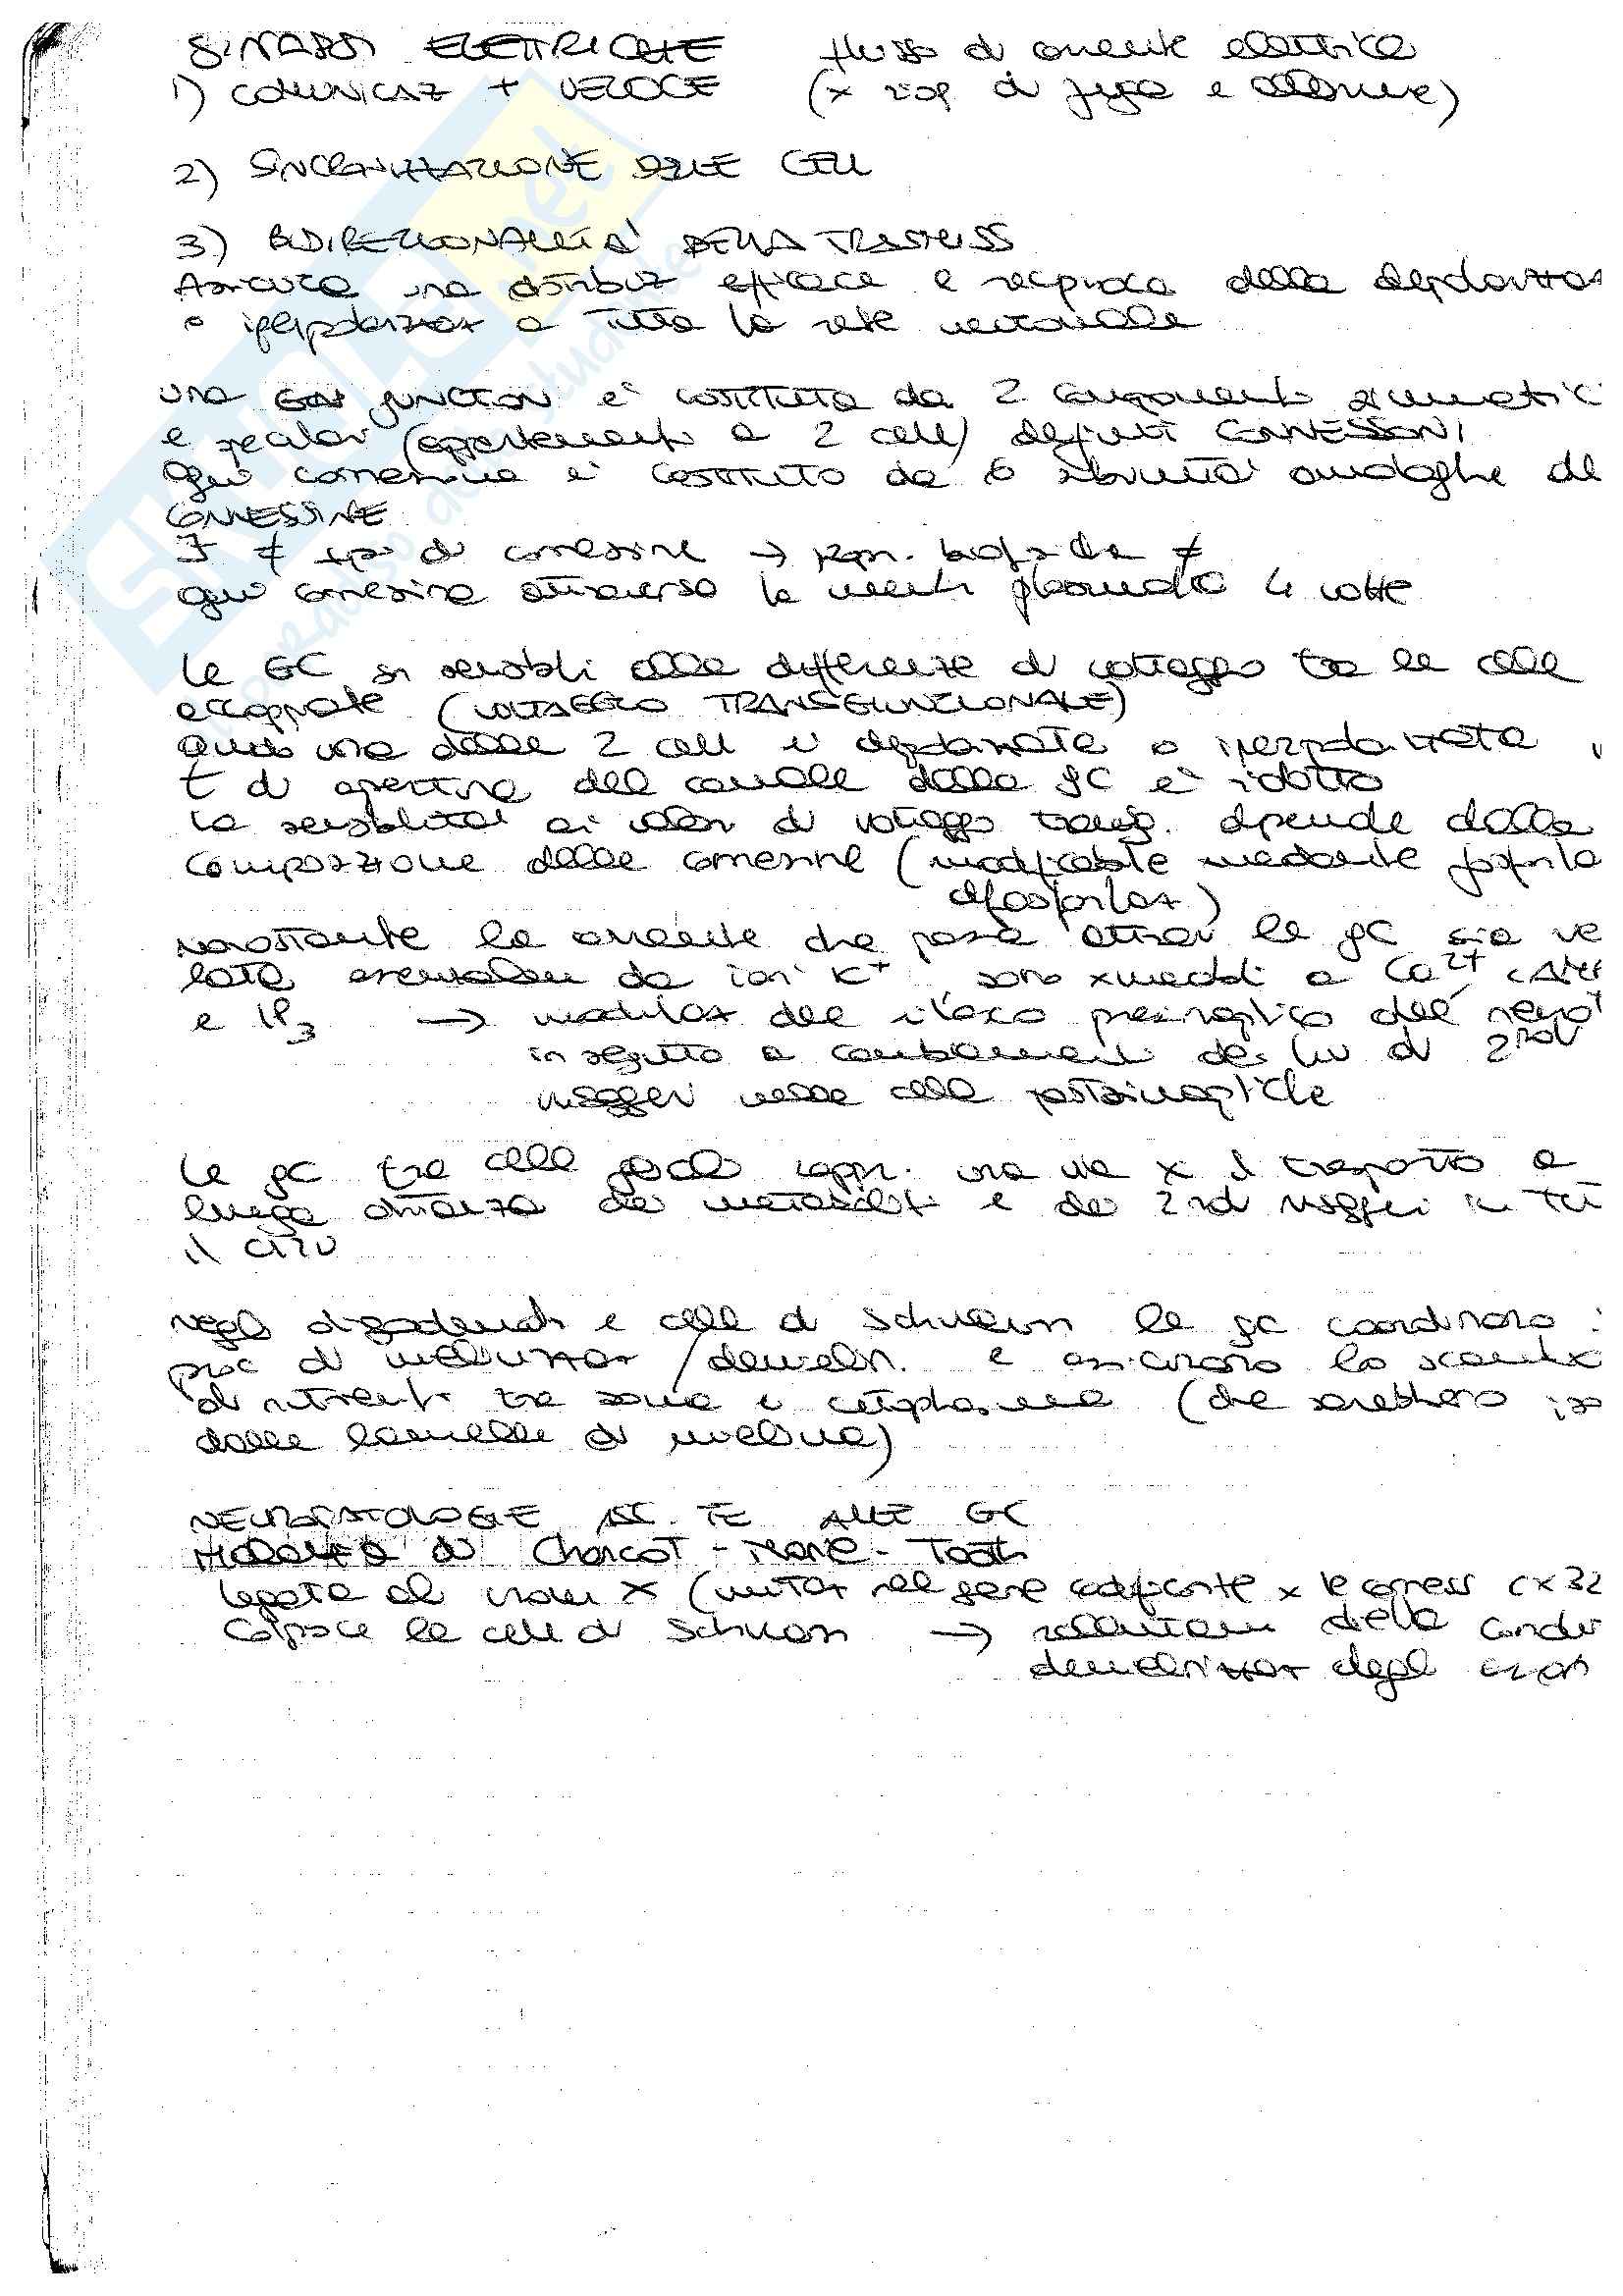 SINAPSI ELETTRICHE flusso di corrente elettrica
1) COMUNICAZ + VELOCE (x risp di fuga e allarme)
2) SINCRONIZZAZIONE DELLE CELL
3) BIDIREZIONALITÀ DELLA TRASMISS
Assicura una distribuz efficace e reciproca della depolarizzaz
o iperpolarizzaz a tutta la rete neuronale
una GAP JUNCTION è costituita da 2 componenti simmetrici
e speculari (appartenenti a 2 cell) definiti CONNESSONI
Ogni connessone è costituito da 6 subunità omologhe dette
CONNESSINE
∃ ≠ tipi di connessine → propr. biofisiche ≠
ogni connessina attraversa la memb plasmatica 4 volte
le GC sn sensibili alle differenze di voltaggio tra le cell
accoppiate (VOLTAGGIO TRANSGIUNZIONALE)
quando una delle 2 cell è depolarizzata o iperpolarizzata
t di apertura del canale della gc è ridotto
La sensibilità ai valori di voltaggio transg. dipende dalla
composizione delle connessine (modificabile mediante fosforila
defosforilaz)
nonostante la corrente che passa attrav le gc sia ve
lata essenzialm da ioni K+, sono xmeabili a Ca2+ cAMP
e IP3 → modulaz del rilascio presinaptico del neurot
in seguito a cambiamenti dei liv di 2ndi
messaggeri nelle cell postsinaptiche
le gc tra cell gliali rappr. una via x il trasporto a
lunga distanza dei metaboliti e dei 2ndi messaggeri in
il
negli oligodendrociti e cell di Schwann le gc coordinano i
proc di mielinizzaz / demielin. e assicurano lo scambio
di nutrienti tra soma e citoplasma (che sarebbero
dalle lamelle di mielina)
NEUROPATOLOGIE ASS.TE ALLE GC
MALATTIA di Charcot-Marie-Tooth
legata al crom X (mutaz nel gene codificante x le conness CX32
Colpisce le cell di Schwann → rallentam della conduz
demielinizzaz degli assoni